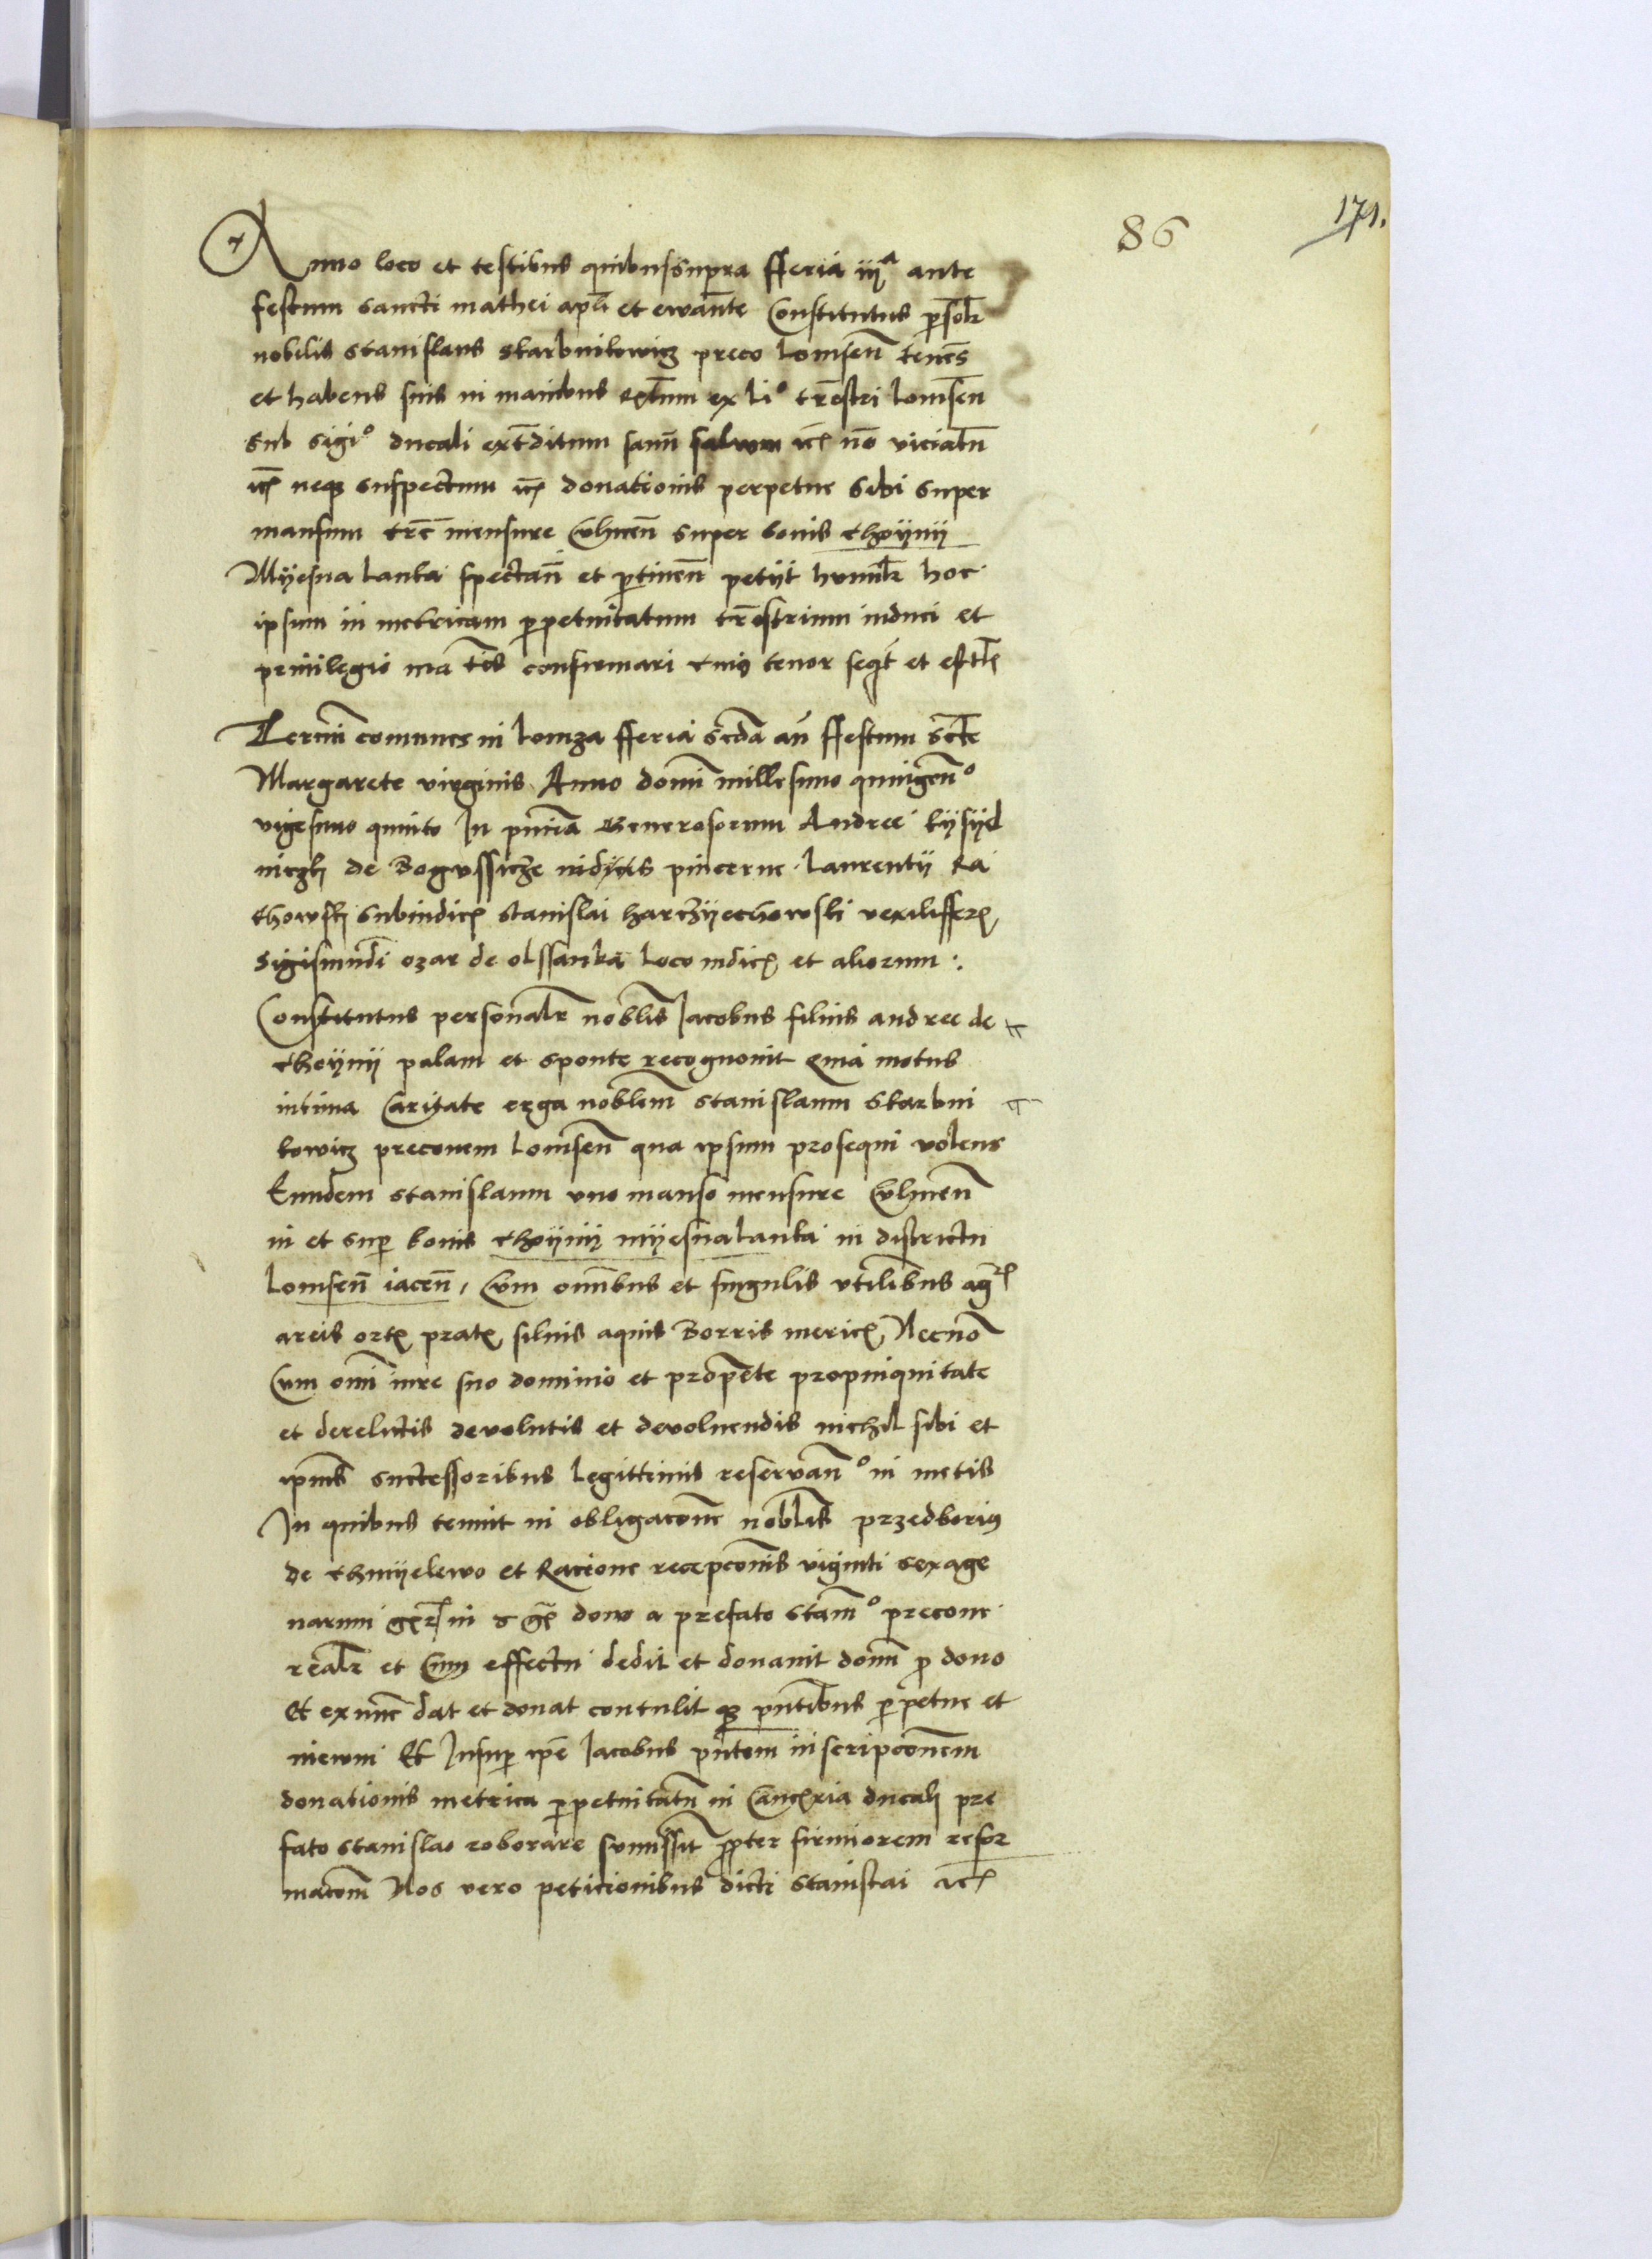 86
171.
Anno loco et testibus quibus supra fferia iija ante
festum sancti mathei apli et ewante Constitutus psolr
nobilis stanislaus skarbnikowicz preco Lomsen tenes
et habens suis in manibus ex li° trestri lomsen
sub sigi° ducali extditum sanu saluum no viciatu
neqz suspectum donationis perpetue sibi super
mansum tre mensure Culmen super bonis choyny
Myesna lanka spectan et ptinen petijt humilr hoc
ipsum in metricam ppetuitatum trestrium induci et
priuilegio confirmari cuius tenor seqt et est
Termi comunes in Lomza fferia scda an ffestum scte
Margarete virginis Anno domi millesimo quingen°
vigesimo quinto In pncia Generosorum Andree kysyel
niczky de Bogussicze iudicis pincerne Laurentij Ra
kowsky subiudicis stanislai harczyechowski vexiliffer
Sigismudi ozar de olssanka loco iudicis et aliorum :.
Constitutus personalr noblis Jacobus filius andree de
choynij palam et sponte recognouit quia motus
intima Caritate erga noblem stanislaum skarbni
kowicz preconem Lomsen qua ipsum prosequi volens
Eundem stanislaum vno manso mensure Culmen
in et sup bonis choynij myesnalanka in districtu
Lomsen iacen, Cum omibus et singulis vtilibus agr
areis ort prat siluis aquis Borris meric Necno
Cum omi iure suo dominio et propriete propinquitate
et derelictis deuolutis et deuoluendis nichil sibi et
ipius successoribus legittimis reseruan° in metis
In quibus tenuit in obligacone noblis przedborius
de chmyelewo et Racione recepconis viginti sexage
narum in dono a prefato stam° precone
realr et Cum effectu dedit et donauit donu p dono
Et ex nunc dat et donat contulit qz pntibus ppetue et
in ewm Et Insup ipe Jacobus pntem inscripconem
donationis metrica ppetuitatu in Cancria ducali pre
fato stanislao roborare summisit ppter firmiorem refor
macom Nos vero peticionibus dicti stanislai etc